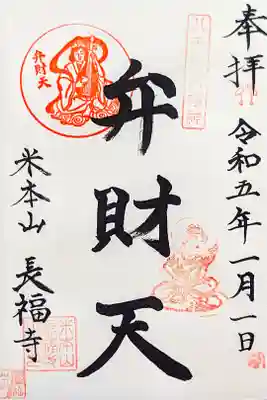 奉拝
令和五年一月一日
弁財天
弁財天
米本山
長福寺